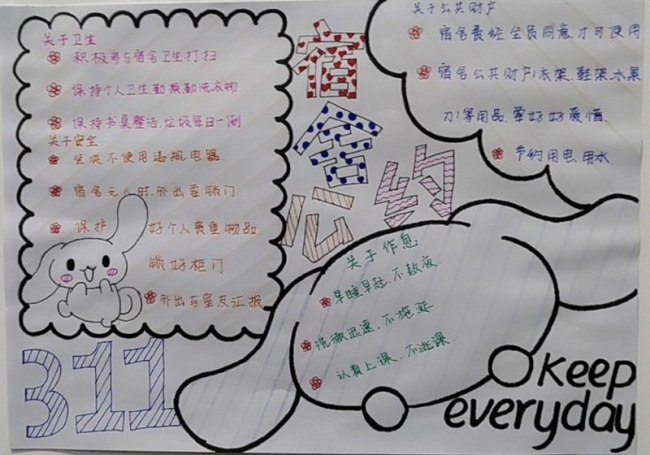 关于卫生
积极参与宿舍卫生打扫
保持个人卫生勤换勤洗衣物
保持书桌整洁,垃圾每日一倒
关于安全
坚决不使用违规电器
宿舍无人时,外出要锁门
保护好个人贵重物品
锁好柜门
外出与室友汇报
宿舍公约
关于公共财产
宿舍费经全员同意才可使用
宿舍公共财产:衣架、鞋架、水果
刀等用品,要好好爱惜
节约用电用水
关于作息
早睡早起,不熬夜
洗漱迅速,不拖延
认真上课,不逃课
311
keep
everyday